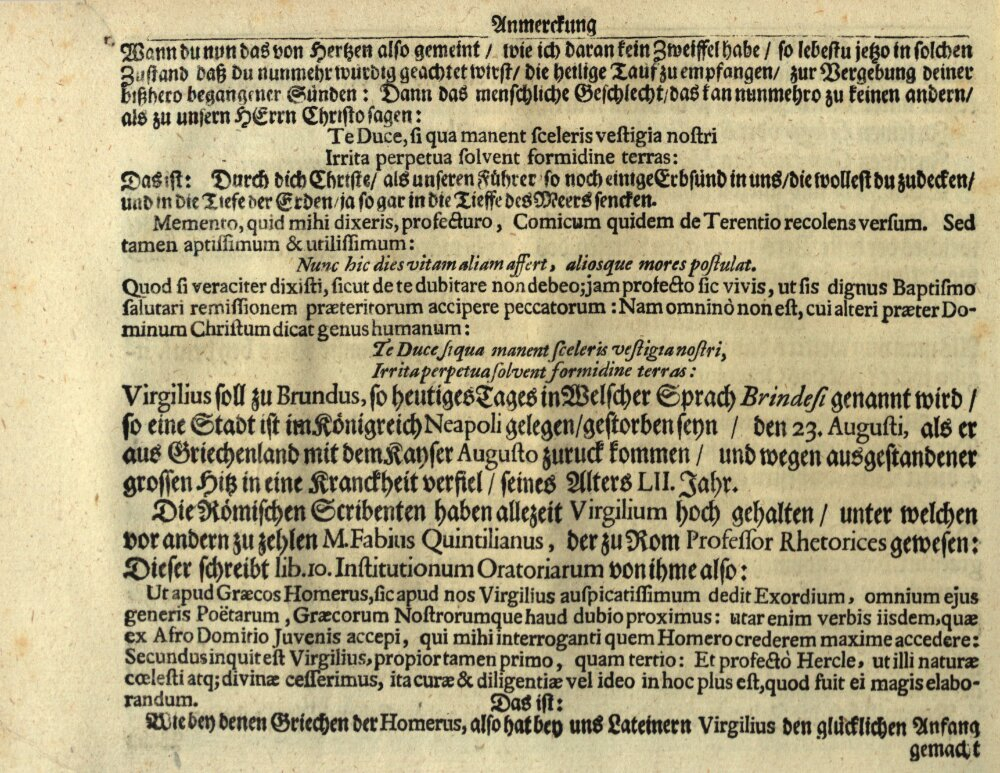 Anmerckung
Wann du nun das von Hertzen also gemeint / wie ich daran kein Zweiffel habe / so lebestu jetzo in solchen
Zustand daß du nunmehr würdig geachtet wirst / die heilige Tauf zu empfangen / zur Vergebung deiner
bißhero begangener Sünden: Dann das menschliche Geschlecht / das kan nunmehro zu keinen andern /
als zu unsern HErrn Christo sagen:
Te Duce, si qua manent sceleris vestigia nostri
Irrita perpetua solvent formidine terras:
Das ist: Durch dich Christe / als unseren Führer so noch einige Erbsünd in uns / die wollest du zudecken /
und in die Tiefe der Erden / ja so gar in die Tieffe des Meers sencken.
Memento, quid mihi dixeris, profecturo, Comicum quidem de Terentio recolens versum. Sed
tamen aptissimum & utilissimum:
Nunc hic dies vitam aliam affert, aliosque mores postulat.
Quod si veraciter dixisti, sicut de te dubitare non debeo; jam profecto sic vivis, ut sis dignus Baptismo
salutari remissionem præteritorum accipere peccatorum: Nam omninò non est, cui alteri præter Do-
minum Christum dicat genus humanum:
Te Duce si qua manent sceleris vestigia nostri,
Irrita perpetua solvent formidine terras:
Virgilius soll zu Brundus, so heutiges Tages in Welscher Sprach Brindesi genannt wird /
so eine Stadt ist im Königreich Neapoli gelegen / gestorben seyn / den 23. Augusti, als er
aus Griechenland mit dem Kayser Augusto zuruck kommen / und wegen ausgestandener
grossen Hitz in eine Kranckheit verfiel / seines Alters LII. Jahr.
Die Römischen Scribenten haben allezeit Virgilium hoch gehalten / unter welchen
vor andern zu zehlen M. Fabius Quintilianus, der zu Rom Professor Rhetorices gewesen:
Dieser schreibt lib. 10. Institutionum Oratoriarum von ihme also:
Ut apud Græcos Homerus, sic apud nos Virgilius auspicatissimum dedit Exordium, omnium ejus
generis Poëtarum, Græcorum Nostrorumque haud dubio proximus: utar enim verbis iisdem, quæ
ex Afro Domitio Juvenis accepi, qui mihi interroganti quem Homero crederem maxime accedere:
Secundus inquit est Virgilius, propior tamen primo, quam tertio: Et profectò Hercle, ut illi naturæ
cœlesti atq; divinæ cesserimus, ita curæ & diligentiæ vel ideo in hoc plus est, quod fuit ei magis elabo-
randum. Das ist:
Wie bey denen Griechen der Homerus, also hat bey uns Lateinern Virgilius den glücklichen Anfang
gemacht